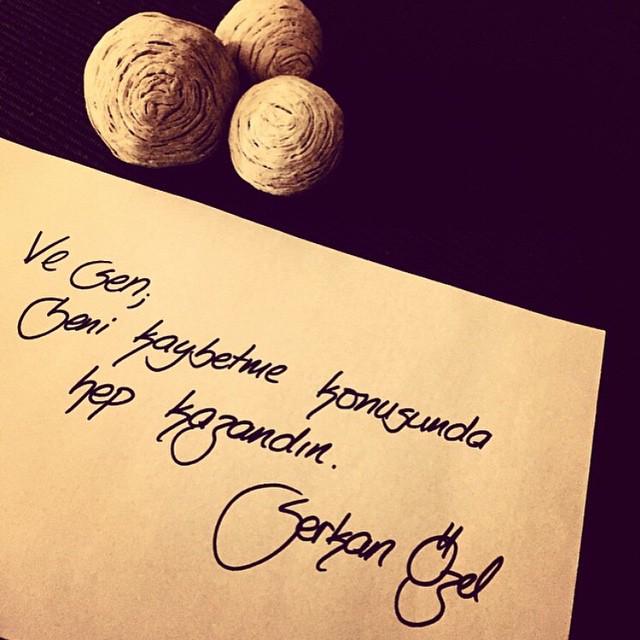 Ve Sen;
Beni kaybetme konusunda
hep kazandın.
Serkan Özel